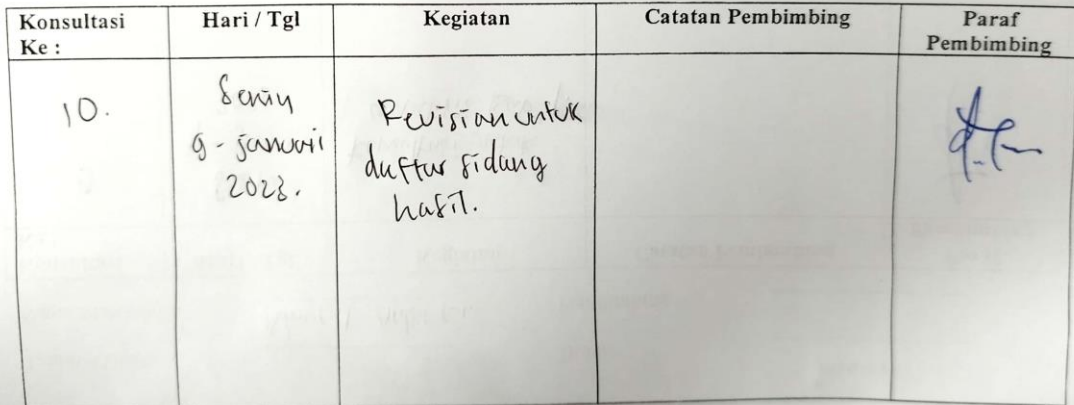 Konsultasi Ke :
Hari / Tgl
Kegiatan
Catatan Pembimbing
Paraf Pembimbing
10.
Senin
9 - januari
2023.
Revisian untuk
daftar sidang
hasil.